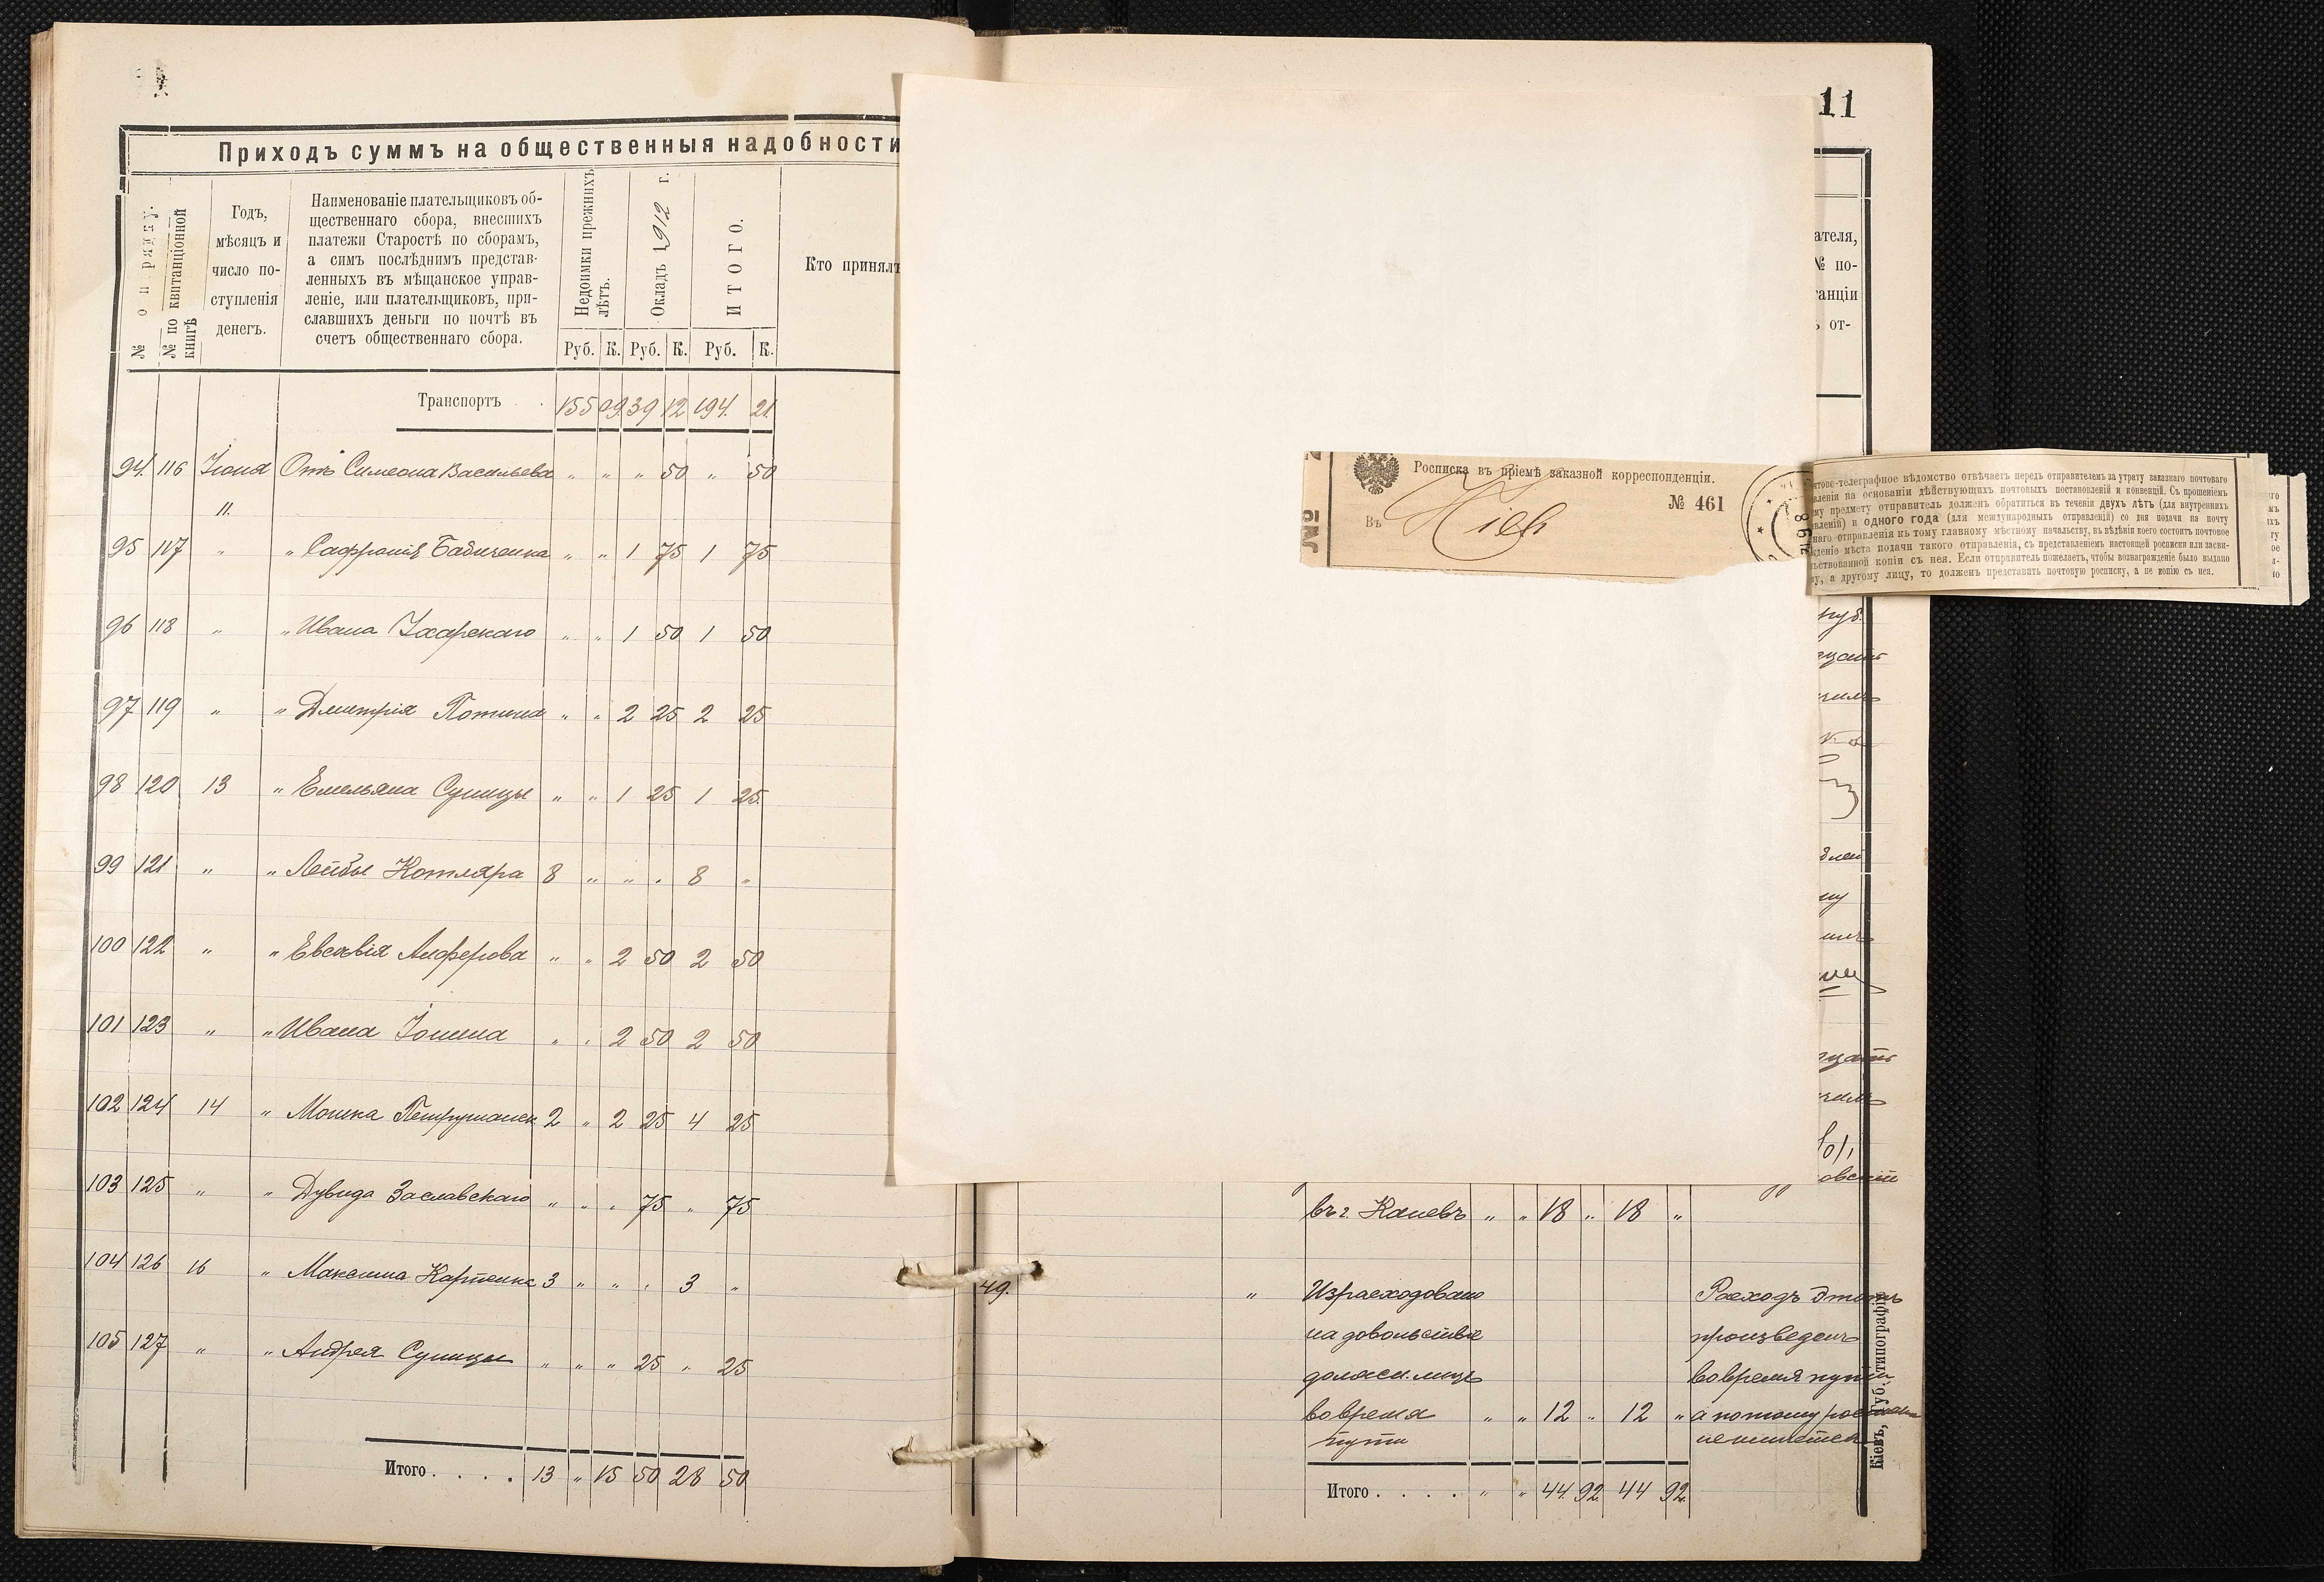 11
Приходъ суммъ на общественныя надобности
№ по ряду.
№ по квитанціонной
книгѣ
Годъ,
мѣсяцъ и
число по-
ступленія
денегъ.
Наименованіе плательщиковъ об-
щественнаго сбора, внесшихъ
платежи Старостѣ по сборамъ,
а симъ послѣднимъ представ-
ленныхъ въ мѣщанское управ-
леніе, или плательщиковъ, при-
славшихъ деньги по почтѣ въ
счетъ общественнаго сбора.
Недоимки прежнихъ
лѣтъ.
Окладъ 1912 г.
ИТОГО.
Кто принялъ
Руб. К. Руб. К. Руб. К.
Транспортъ 155 09. 39 12 194. 21.
94. 116 Іюня Отъ Симеона Васильева " " " 50 " 50
11.
95 117 " " Софронія Бабиченка " " 1 75 1 75
96 118 " " Ивана " " 1 50 1 50
97 119 " " Дмитрія " " 2 25 2 25
98 120 13 " Емельяна Суницы " " 1 25 1 25.
99 121 " " Лейбы Котляра 8 " " " 8 "
100 122 " " Евсевія Алферова " " 2 50 2 50
101 123 " " Ивана " " 2 50 2 50
102 124 14 " Мошка 2 " 2 25 4 25
103 125 " " Дувида Заславскаго " " " 75 " 75
104 126 16 " Максима Карпенка 3 " " " 3 "
105 127 " " Андрея Суницы " " " 25 " 25
Итого . . . . 13 " 15 50 28 50
Росписка въ пріемѣ заказной корреспонденціи.
№ 461
Въ Кіевъ
№
чтово-телеграфное вѣдомство отвѣчаетъ передъ отправителемъ за утрату заказнаго почтоваго
вленія на основаніи дѣйствующихъ почтовыхъ постановленій и конвенцій. Съ прошеніемъ
му предмету отправитель долженъ обратиться въ теченіи двухъ лѣтъ (для внутреннихъ
вленій) и одного года (для международныхъ отправленій) со дня подачи на почту
наго отправленія къ тому главному мѣстному начальству, въ вѣдѣніи коего состоитъ почтовое
жденіе мѣста подачи такого отправленія, съ представленіемъ настоящей росписки или засви-
льствованной копіи съ нея. Если отправитель пожелаетъ, чтобы вознагражденіе было выдано
му, а другому лицу, то долженъ представить почтовую росписку, а не копію съ нея.
ателя,
№ по-
танціи
ъ от-
овскій
въ г. Каневъ " " 18 " 18 "
49. " Израсходовано Расходъ этотъ
на довольствіе произведенъ
должн. лицъ во время пути
во время " " 12 " 12 " а потому
пути не имѣется
Итого . . . . " " 44. 92. 44 92.
Кіевъ, Губ. типографія